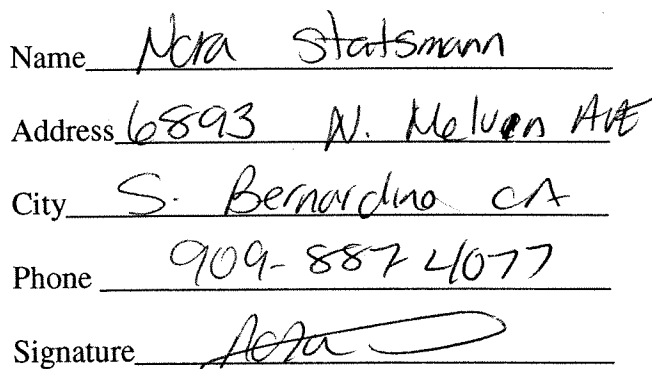 Name Nora Statsmann
Address 6893 N. Melvin Ave
City S. Bernardino CA
Phone 909-887 4077
Signature Nora